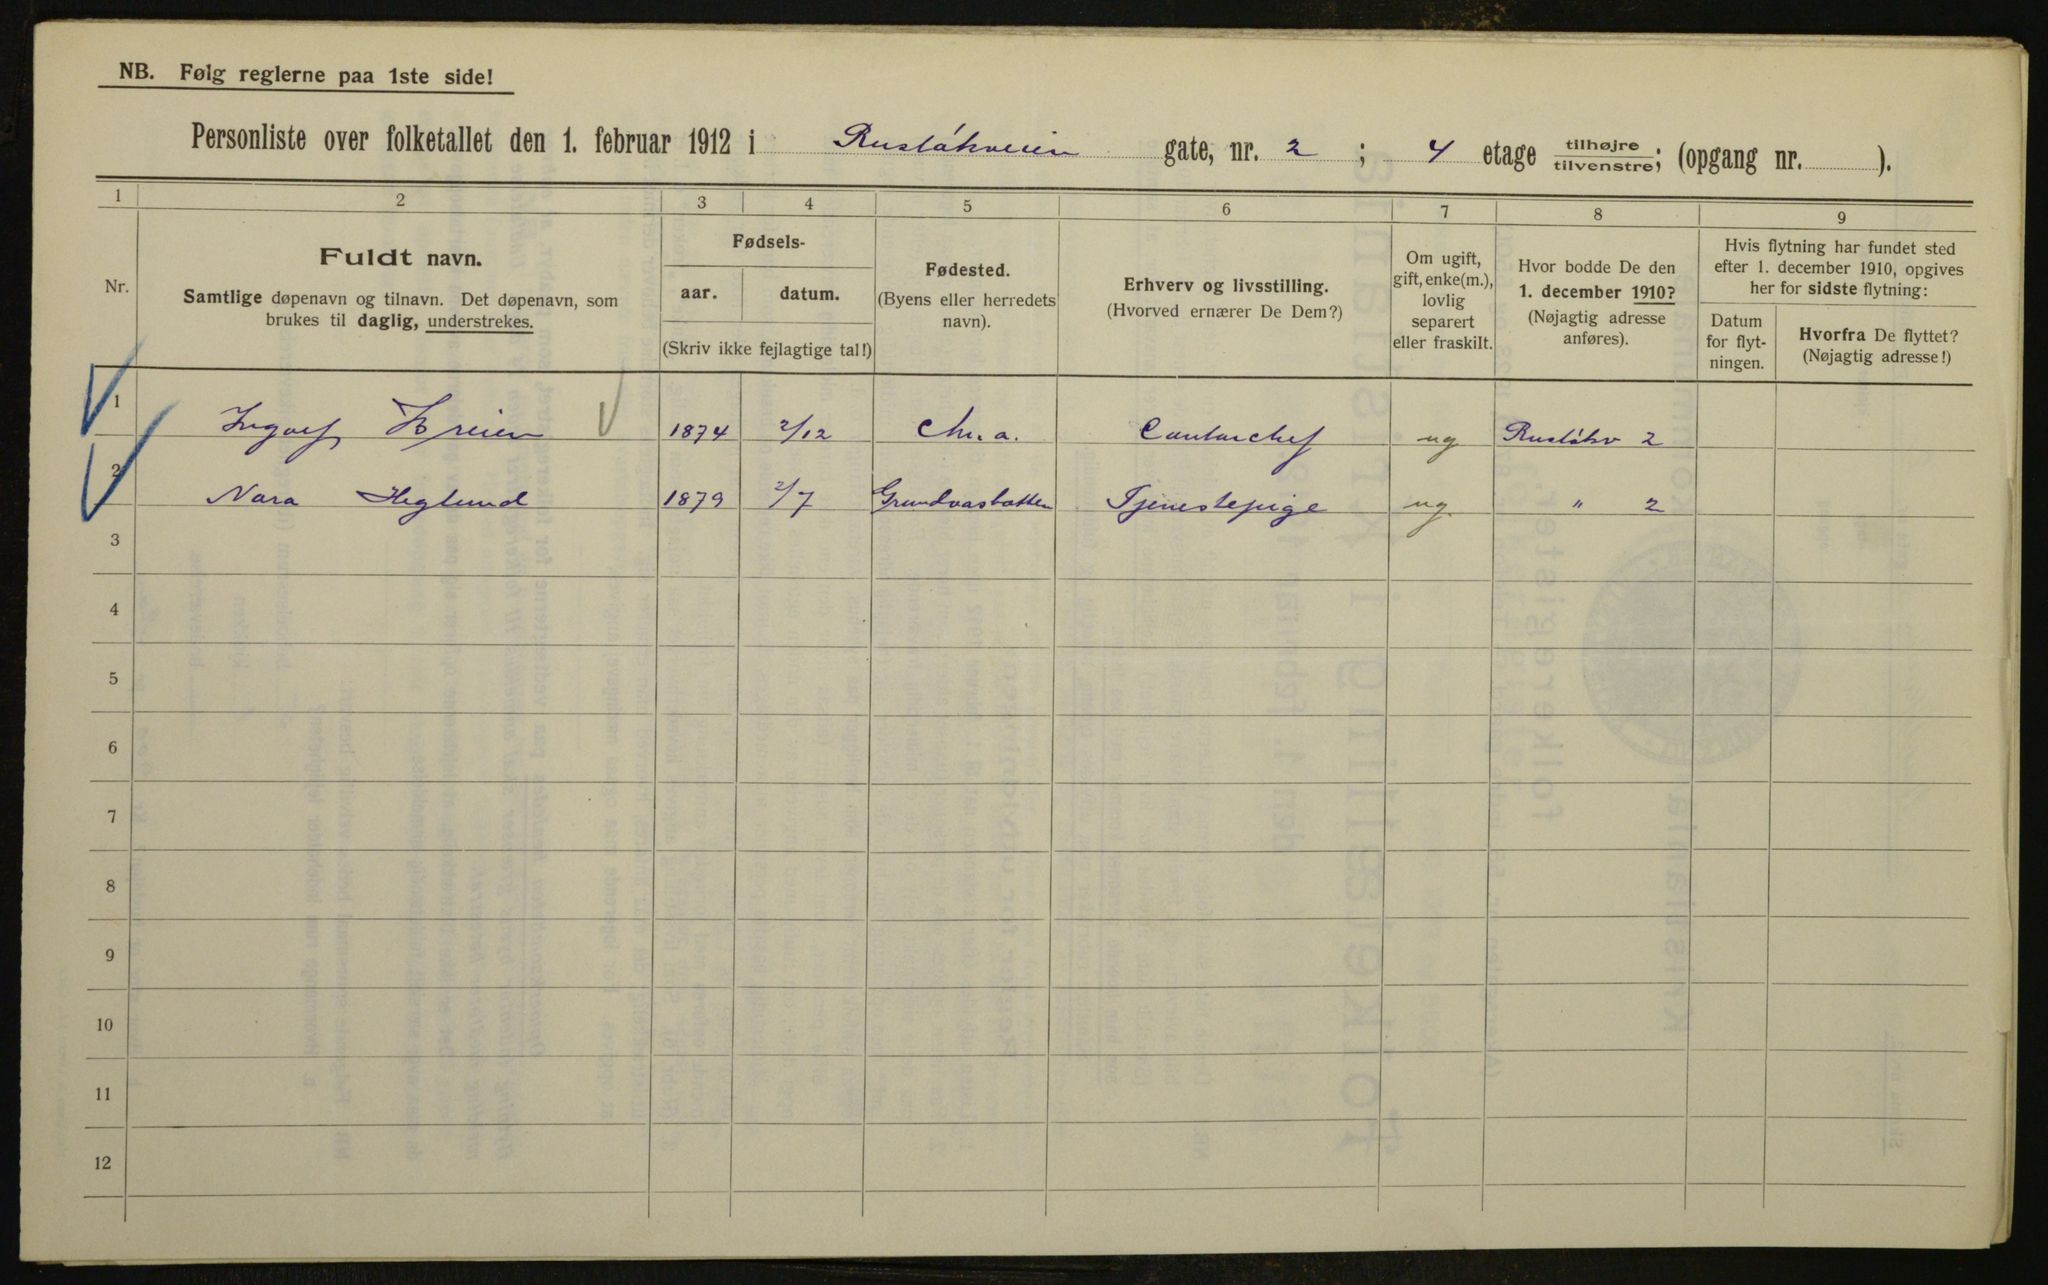 NB. Følg reglerne paa 1ste side!
Personliste over folketallet den 1. februar 1912 i Rusløkveien gate, nr. 2 ; 4 etage tilhøjre/tilvenstre; (opgang nr. ).
1 2 3 4 5 6 7 8 9
Nr.
Fuldt navn.
Samtlige døpenavn og tilnavn. Det døpenavn, som
brukes til daglig, understrekes.
Fødsels-
aar. datum.
(Skriv ikke fejlagtige tal!)
Fødested.
(Byens eller herredets
navn).
Erhverv og livsstilling.
(Hvorved ernærer De Dem?)
Om ugift,
gift, enke(m.),
lovlig
separert
eller fraskilt.
Hvor bodde De den
1. december 1910?
(Nøjagtig adresse
anføres).
Hvis flytning har fundet sted
efter 1. december 1910, opgives
her for sidste flytning:
Datum
for flyt-
ningen.
Hvorfra De flyttet?
(Nøjagtig adresse!)
1 Ingolf 1874 2/12 Chr.a. Contorchef ug Rusløkv 2
2 Nora Heglund 1879 2/7 Tjenestepige ug. " 2
3
4
5
6
7
8
9
10
11
12